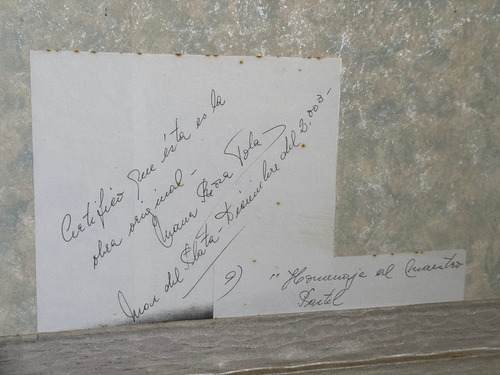 Certifico que ésta es la
obra original -
María Rosa Tola
Mar del Plata - Diciembre del 2.003 -
9) "Homenaje al Maestro
Pastel